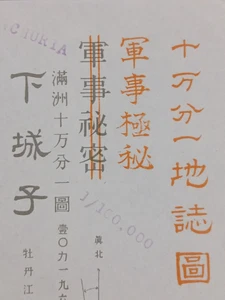 十万分一地誌圖
軍事極秘
軍事祕密
1/100,000
眞北
滿洲十万分一圖
壹〇六一九
下城子
牡丹江